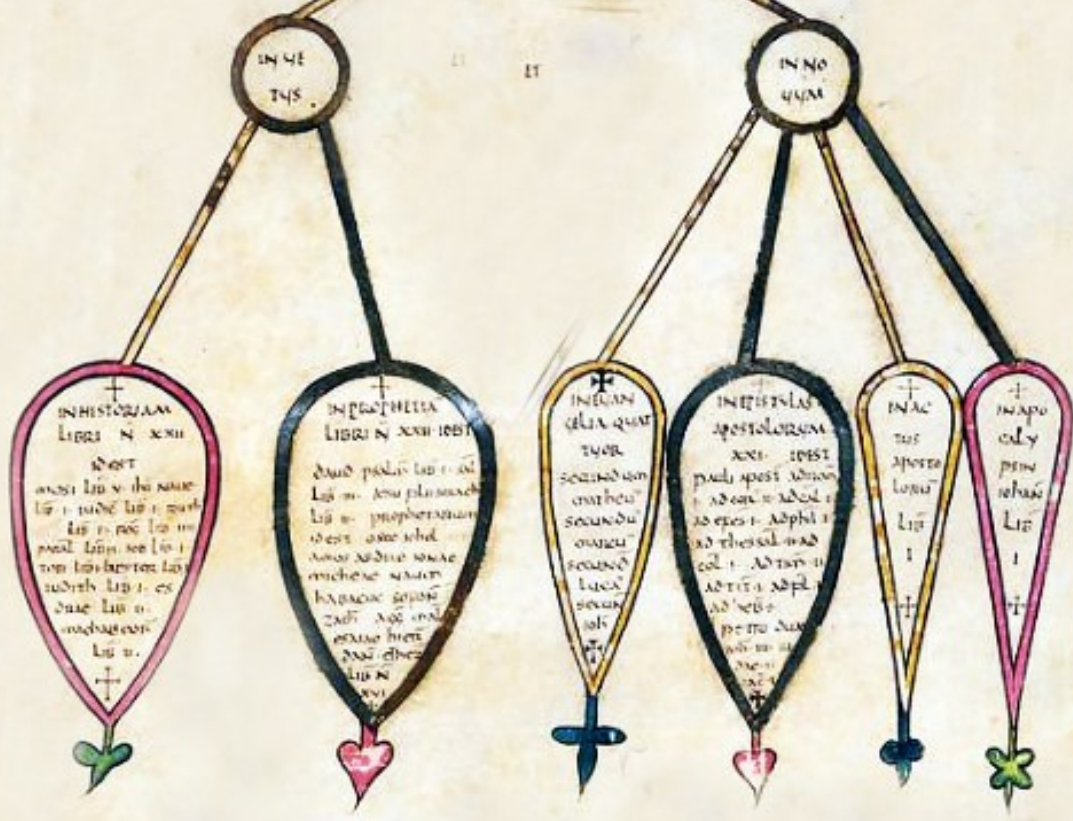 IN VE
TUS
ET
IN NO
VUM
IN HISTORIAM
LIBRI N̄ XXII
IDEST
mosi Lib V ihu naue
Lib I iudic Lib I ruth
Lib I reg̃ Lib IIII
paral Lib II iob Lib I
tobi Lib I hester Lib I
iudith Lib I es
drae Lib II
machabeorũ
Lib II
IN PROPHETIA
LIBRI N̄ XXII IDEST
dauid psalm Lib I sal
Lib III iesu filii sirach
Lib II prophetarum
idest osee iohel
amos abdiu ionae
micheae naum
habacuc sofon
zach agg mal
esaiae hiere
dan ezhec
Lib N̄
XVI
IN EUAN
GELIA QUAT
TUOR
secundum
matheũ
secundũ
marcũ
secund
Lucã
secun
ioh
IN EPISTULAS
APOSTOLORUM
XXI IDEST
pauli apost ad rom
ad cor II ad gal I
ad efes I ad phil I
ad thessal II ad
col I ad tim II
ad tit I ad fil I
ad hebr
petri duae
IN AC
TUS
APOSTO
LORŨ
LIB
I
IN APO
CALY
PSIN
IOHAÑ
LIB
I